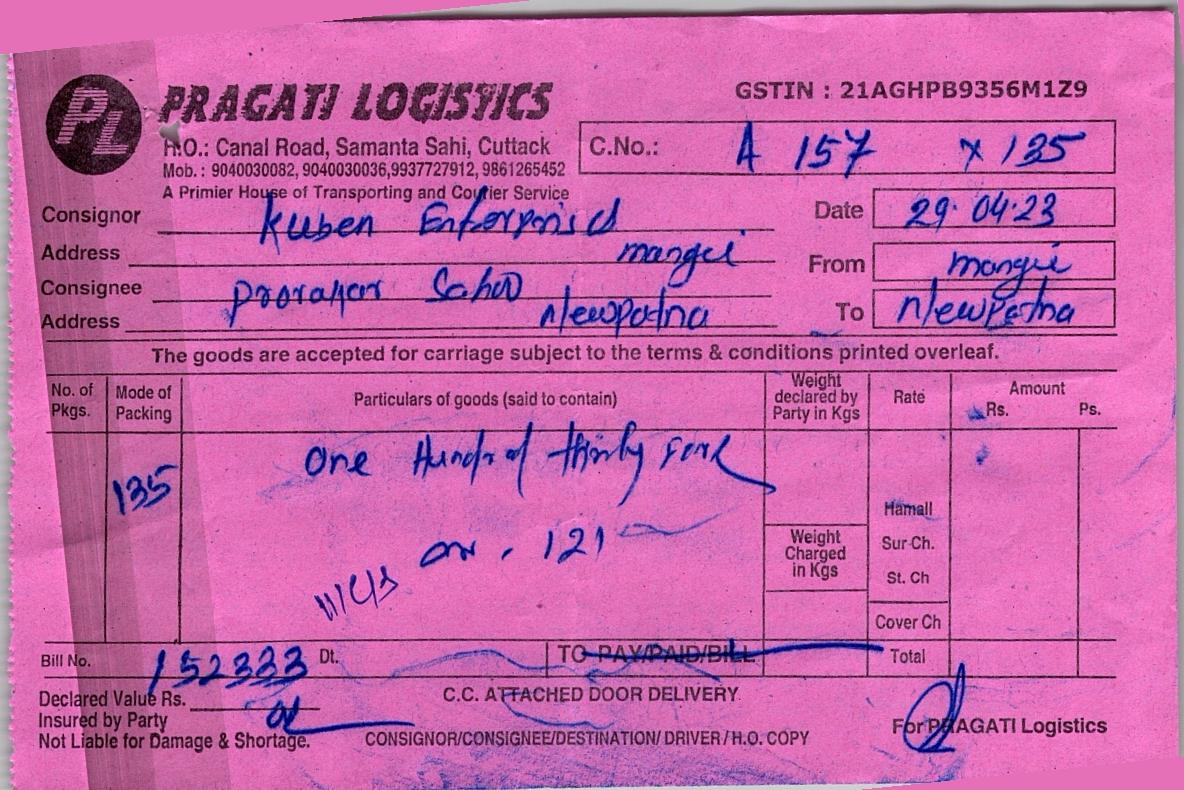 PL PRAGATI LOGISTICS
GSTIN : 21AGHPB9356M1Z9
H.O.: Canal Road, Samanta Sahi, Cuttack
Mob. : 9040030082, 9040030036,9937727912, 9861265452
A Primier House of Transporting and Courier Service
C.No.: A 157 x 135
Consignor Kuben Enterprises
Date 29.04.23
Address mangli
From mangli
Consignee Sahoo
Address Newpatna
To Newpatna
The goods are accepted for carriage subject to the terms & conditions printed overleaf.
No. of Pkgs. Mode of Packing Particulars of goods (said to contain) Weight declared by Party in Kgs Rate Amount Rs. Ps.
135 One Hundred thirty
121
Hamall
Weight Charged in Kgs
Sur-Ch.
St. Ch
Cover Ch
Bill No. 152333 Dt. TO PAY/PAID/BILL Total
Declared Value Rs.
C.C. ATTACHED DOOR DELIVERY
Insured by Party
Not Liable for Damage & Shortage.
CONSIGNOR/CONSIGNEE/DESTINATION/ DRIVER / H.O. COPY
For PRAGATI Logistics